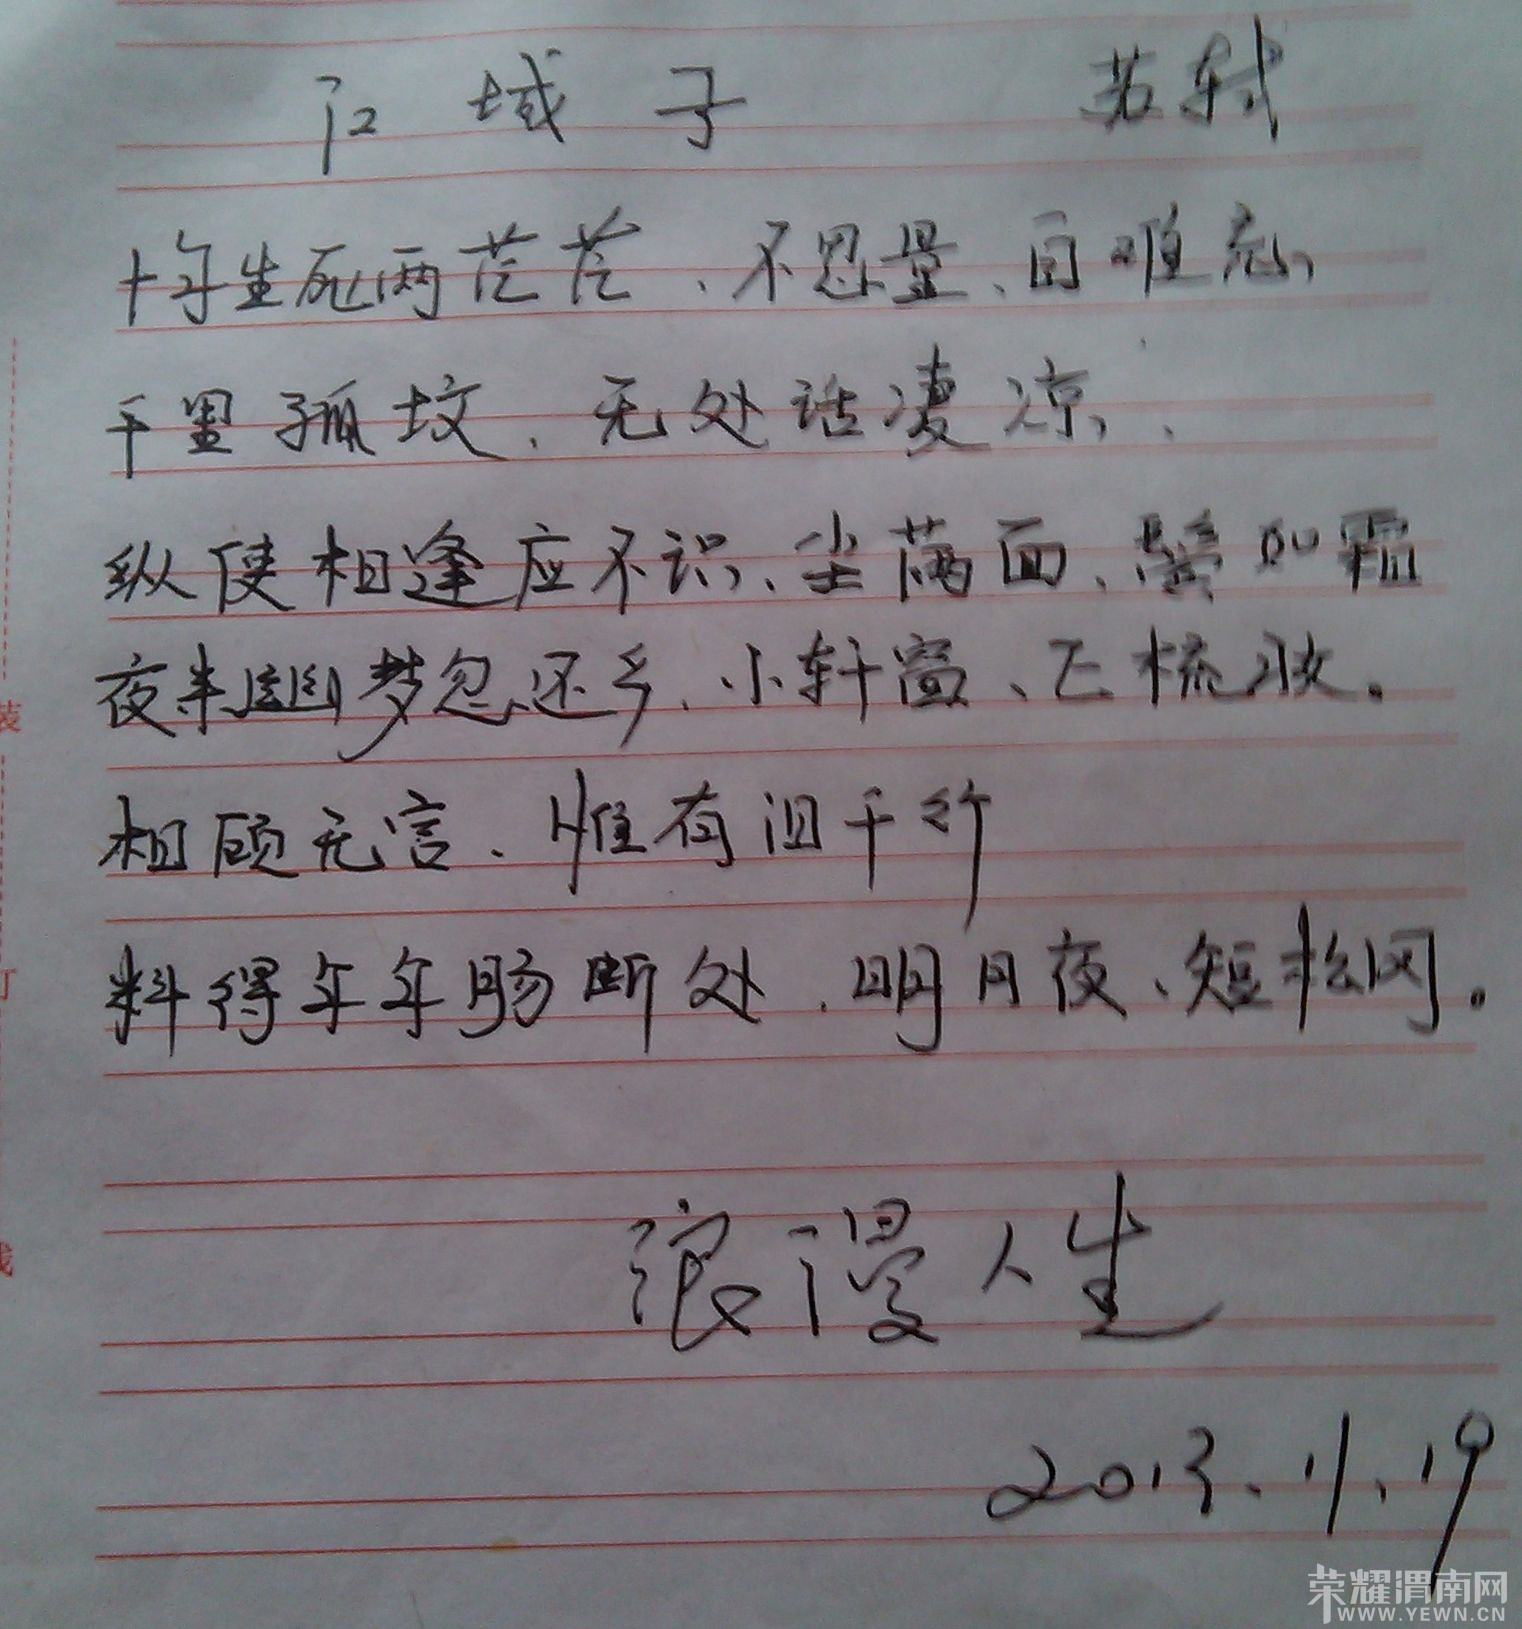 江城子 苏轼
十年生死两茫茫、不思量、自难忘,
千里孤坟、无处话凄凉,
纵使相逢应不识、尘满面、鬓如霜
夜来幽梦忽还乡、小轩窗、正梳妆。
相顾无言、惟有泪千行
料得年年肠断处、明月夜、短松冈。
浪漫人生
2013.11.19
荣耀渭南网
WWW.YEWN.CN
装
订
线